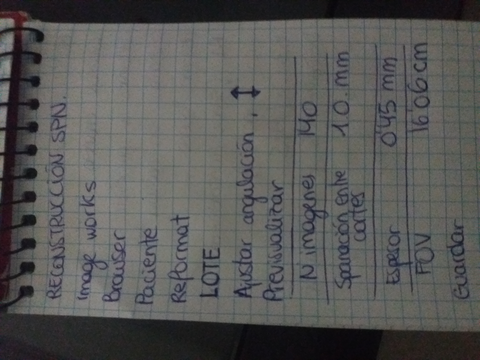 RECONSTRUCCIÓN SPN.
Image works
Browser
Paciente
Reformat
LOTE
Ajustar angulación, ↕
Previsualizar
N imagenes 140
Sparación entre cortes 1.0 mm
Espesor 0'45 mm
FOV 16'06 cm
Guardar